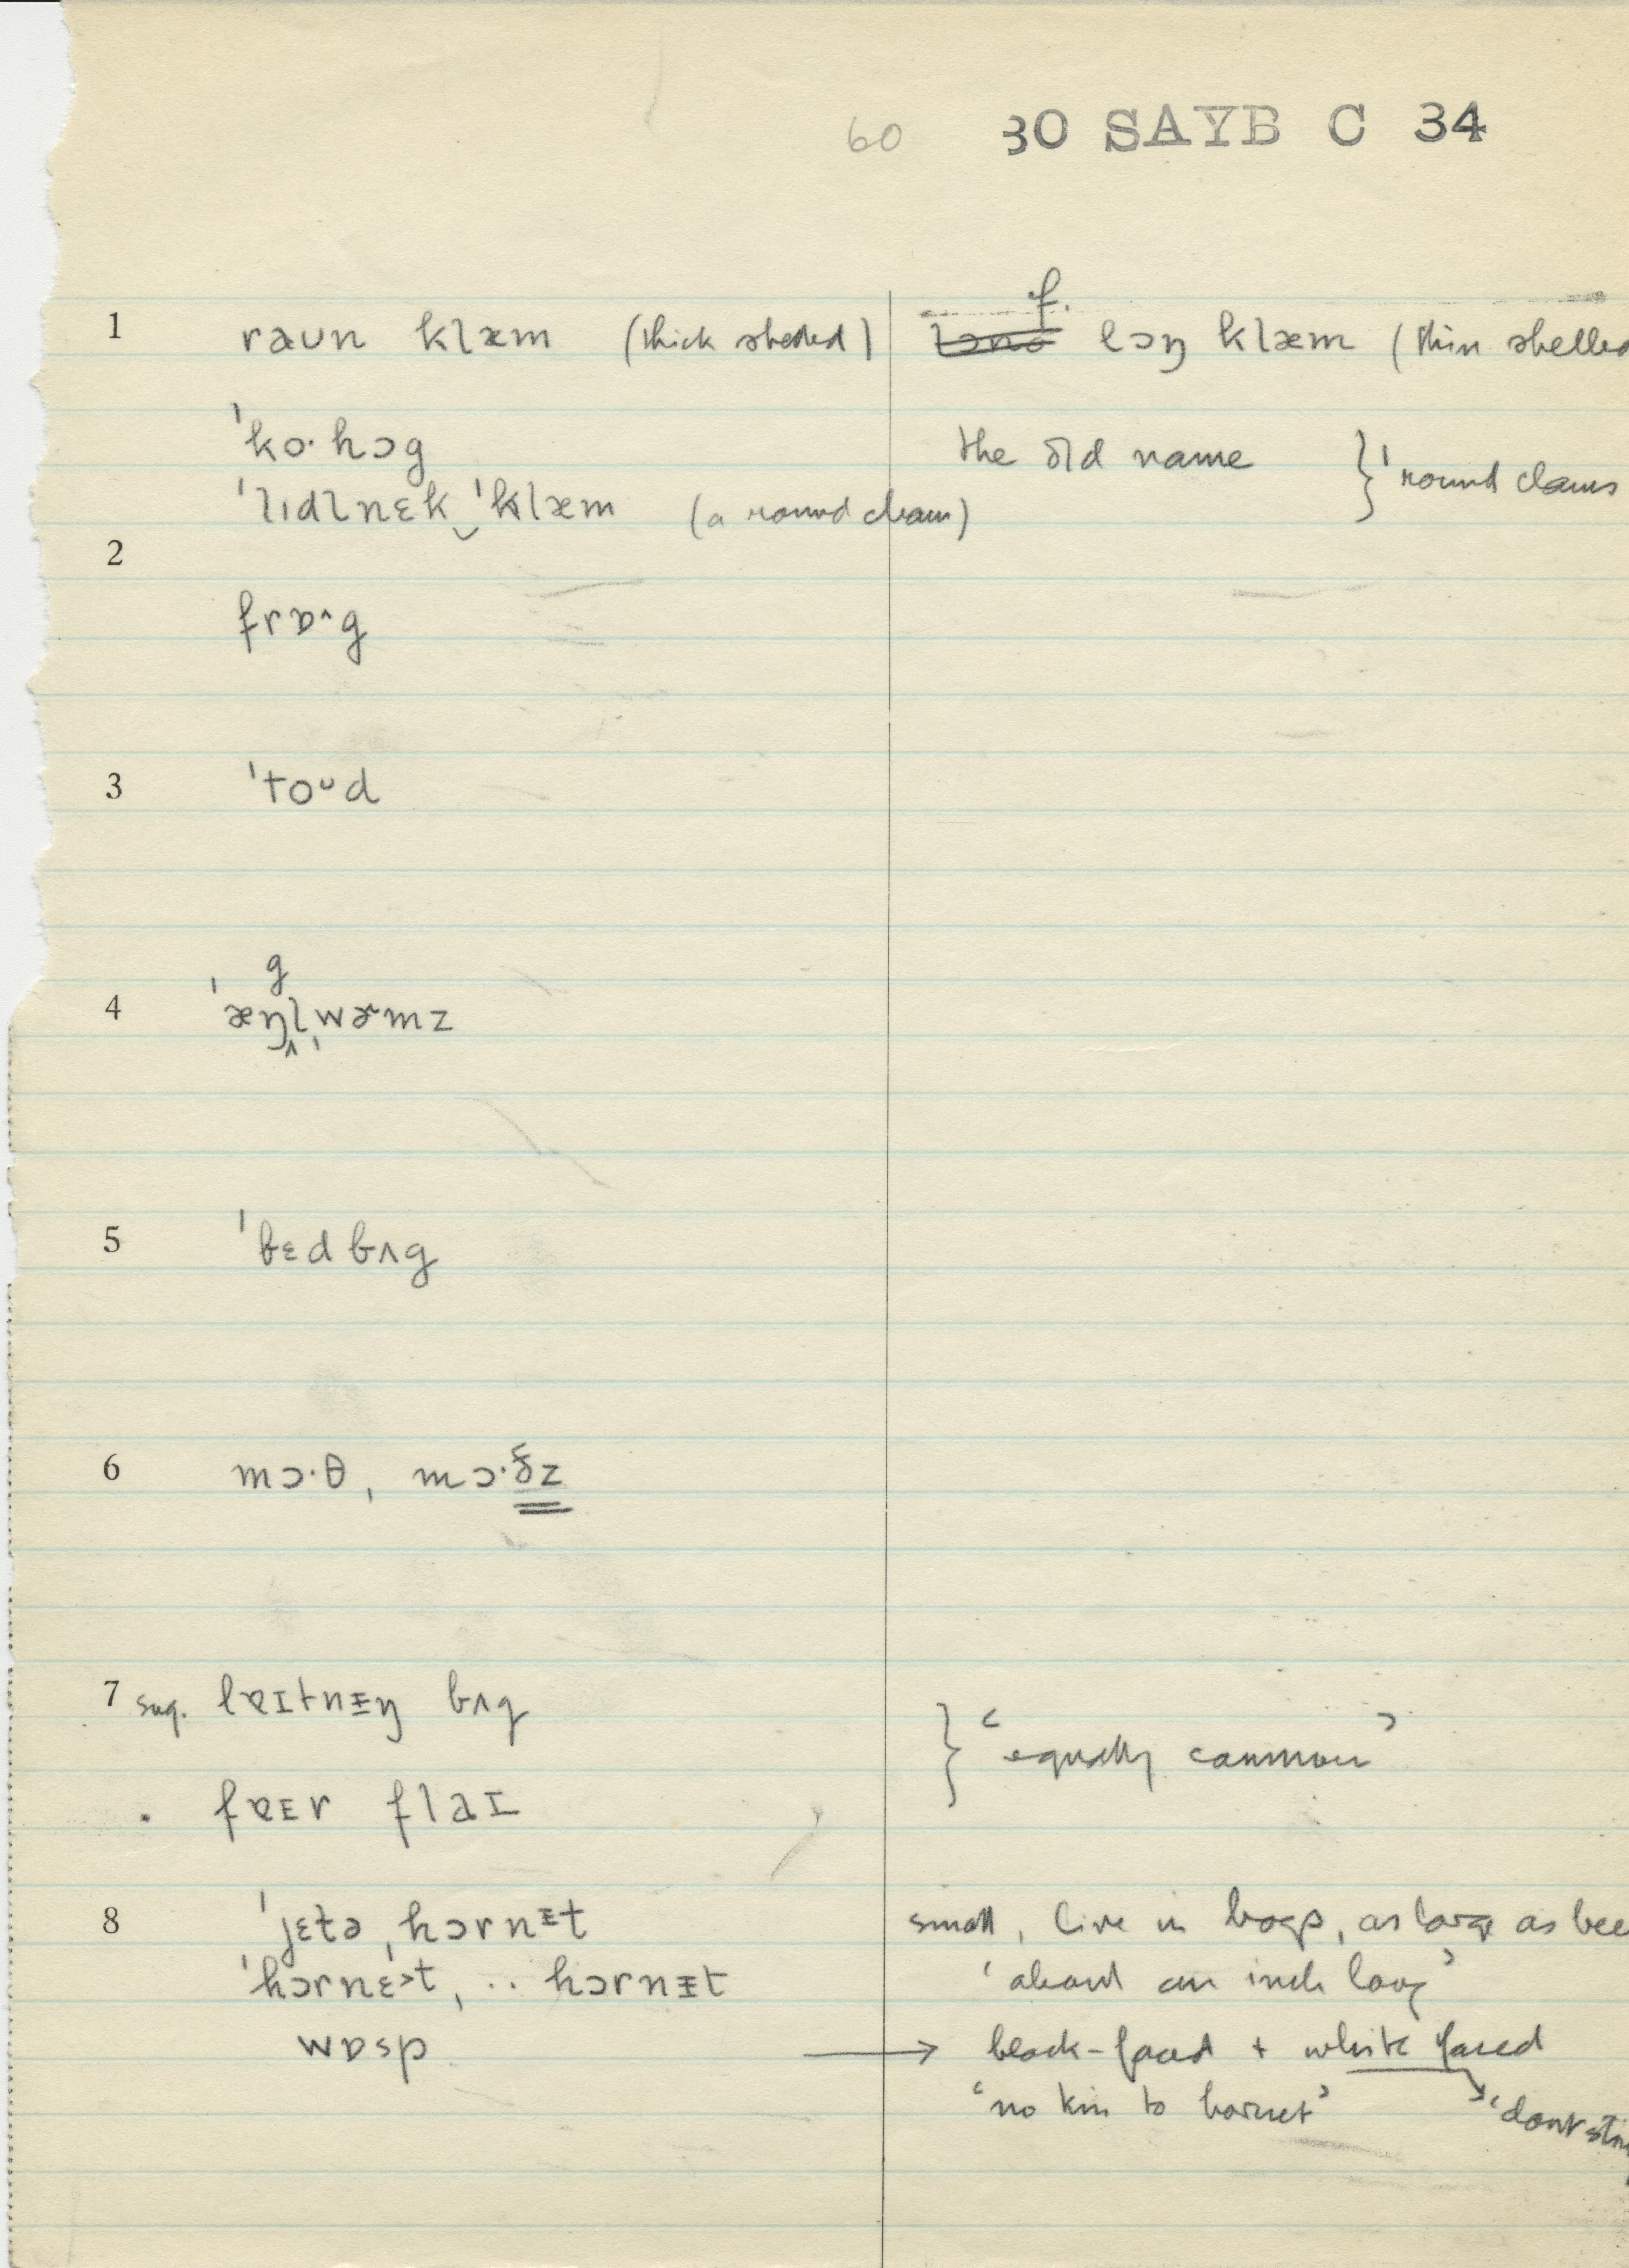 60 30 SAYB C 34
1 raʊn klæm (thick shelled) f. lɔŋ klæm (thin shelled
ˈko·hɔg the old name } ˈround clams
ˈlɪdlnɛk‿ˈklæm (a round clam)
2
frɒ^g
3 ˈtoᴜd
g
4 ˈæŋlˌwɚmz
5 ˈbɛdbʌg
6 mɔ·θ, mɔ·ðz
7 sug. lɐɪtnɪŋ bʌg
} ‘equally common’
. fɐɪr flaɪ
8 ˈjɛtə ˌhɔrnɪt small, live in bogs, as large as bee
ˈhɔrnɛ>t, .. hɔrnɪt ‘about an inch long’
wɒsp → black-faced + white faced
‘no kin to hornet’ ‘dont stin